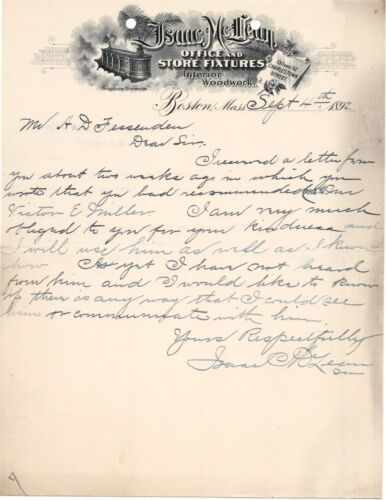 Isaac McLean,
OFFICE AND
STORE FIXTURES
Interior
Woodwork.
CHARLESTOWN
STREET.
Boston, Mass Sept 4th 1892
Mr A. D Fessenden
Dear Sir.
I received a letter from
you about two weeks ago in which you
wrote that you had recommended
Victor E Miller. I am very much
obliged to you for your kindness and
I will use him as well as I know
how As yet I have not heard
from him and I would like to know
if there is any way that I could see
him or communicate with him.
Yours Respectfully
Isaac McLean